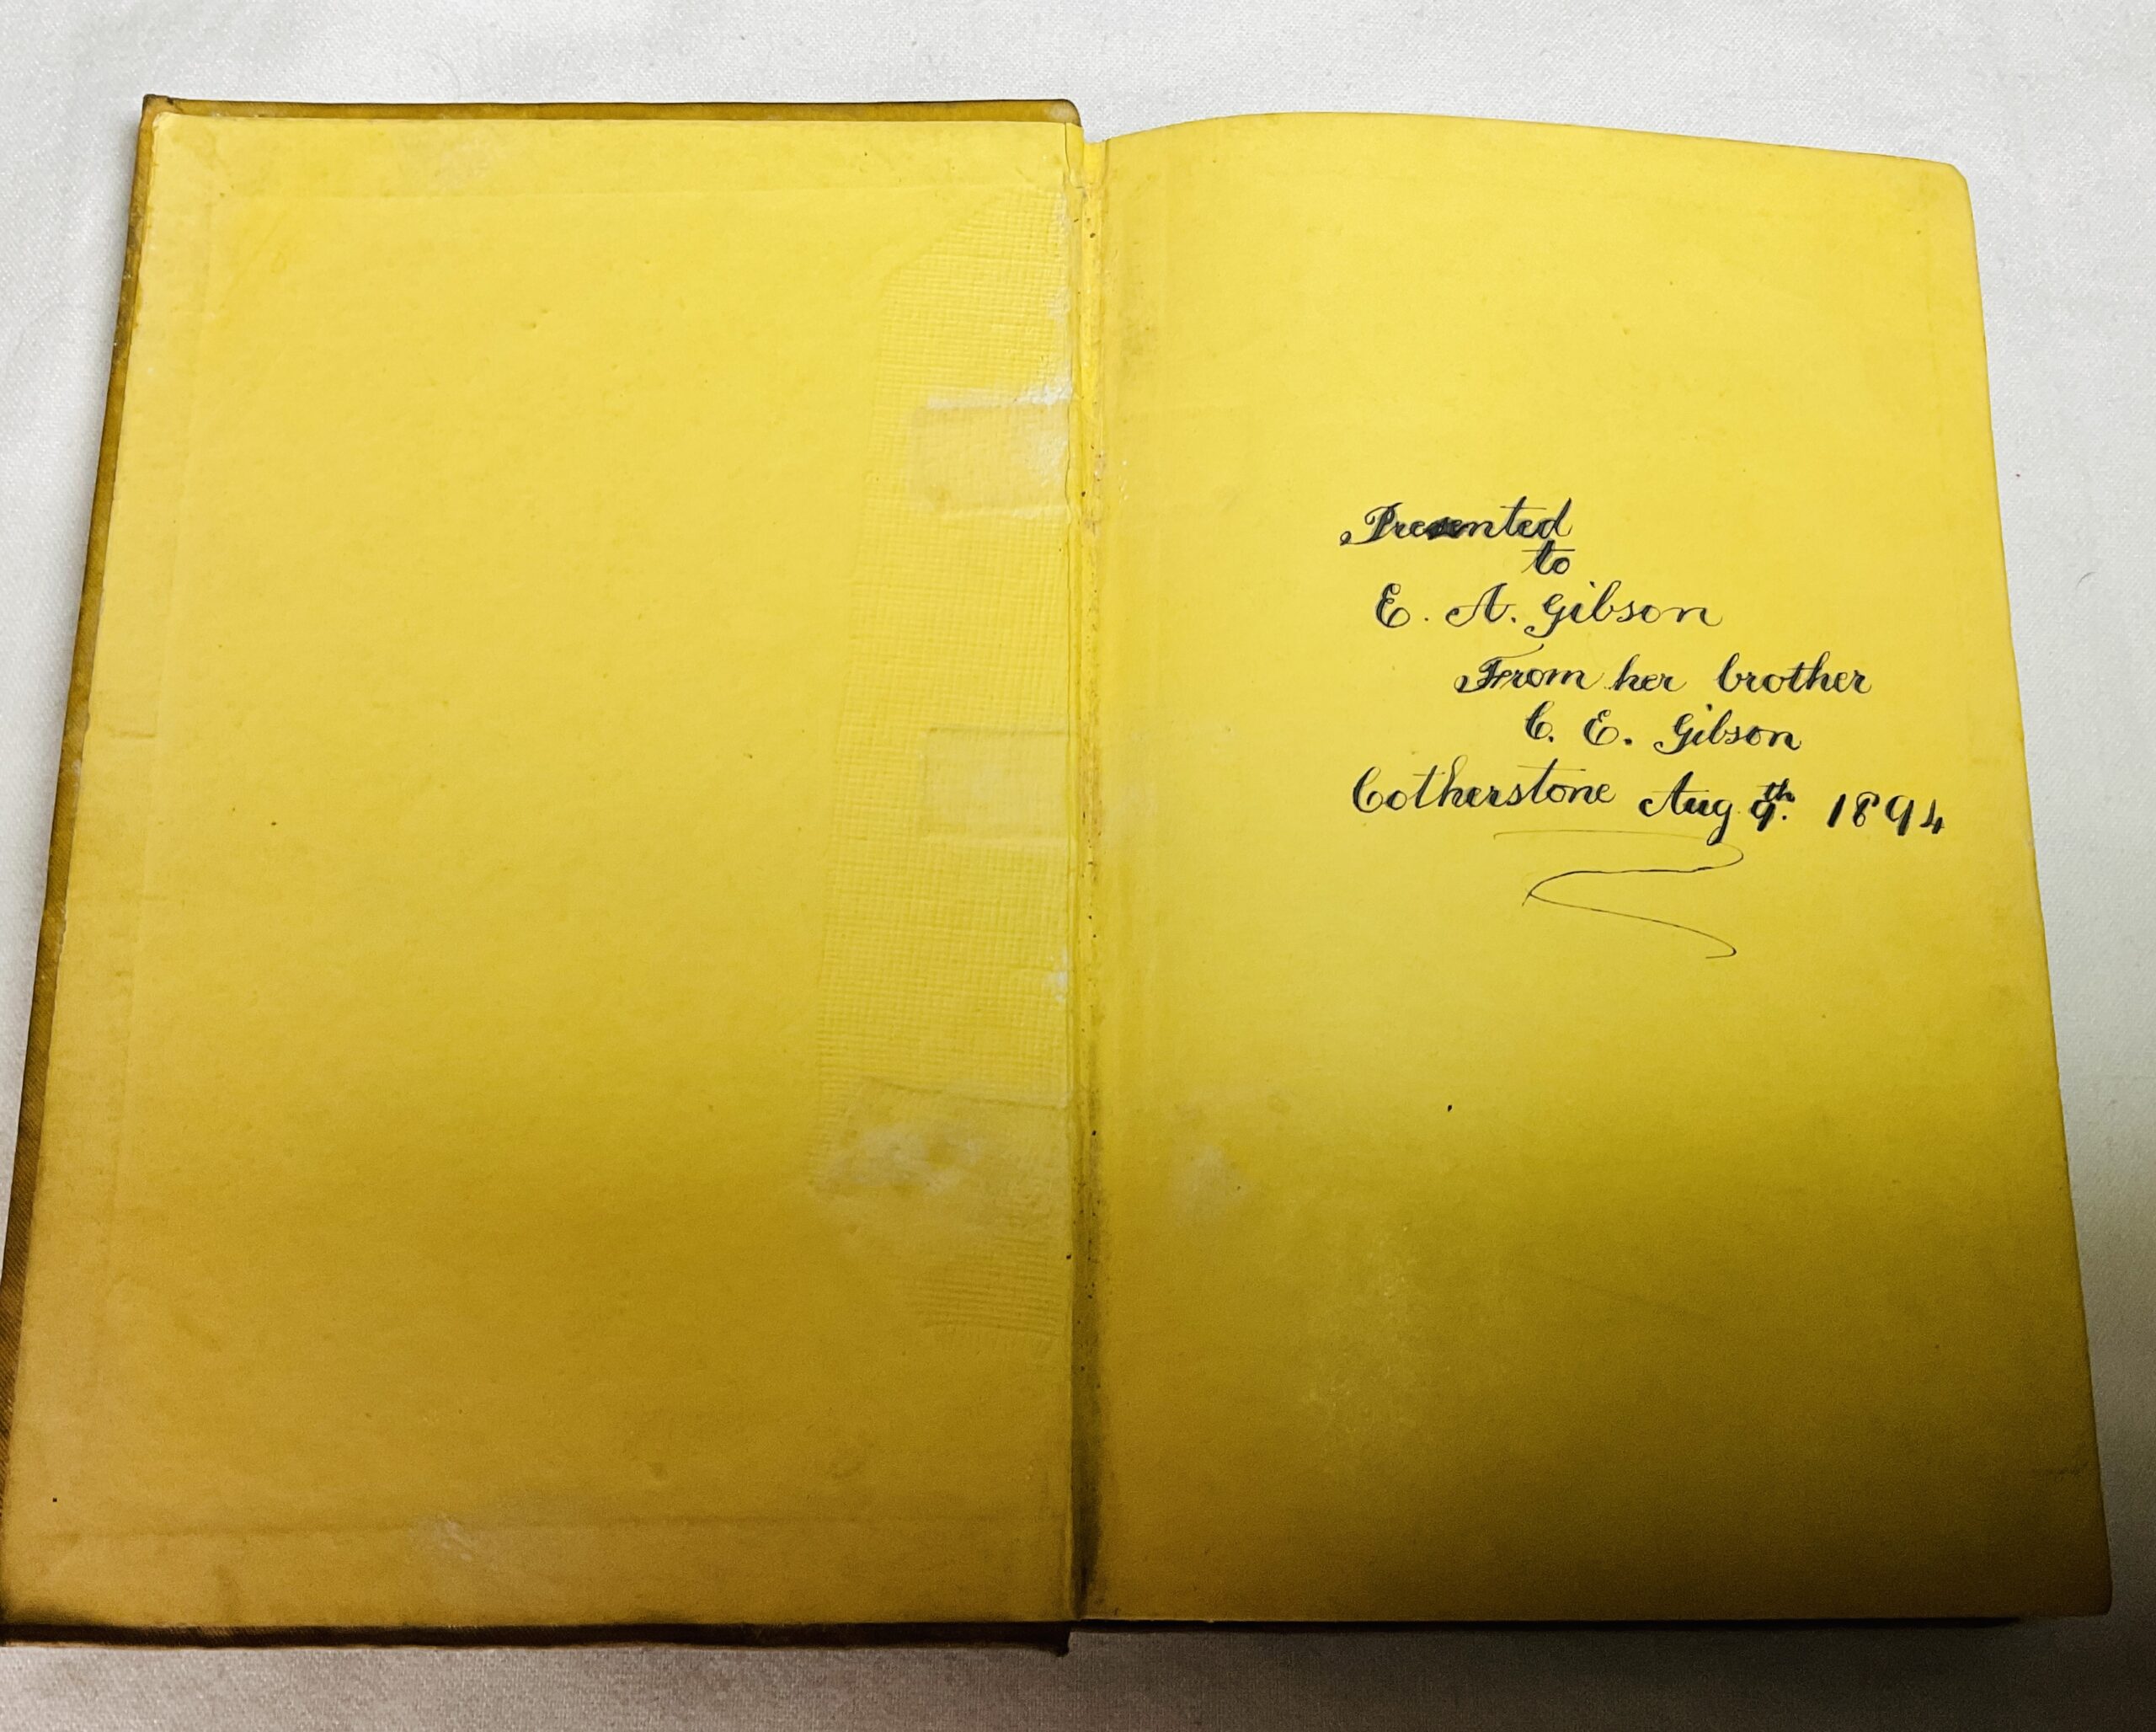 Presented
to
E. A. Gibson
From her brother
C. E. Gibson
Cotherstone Aug 9th. 1894